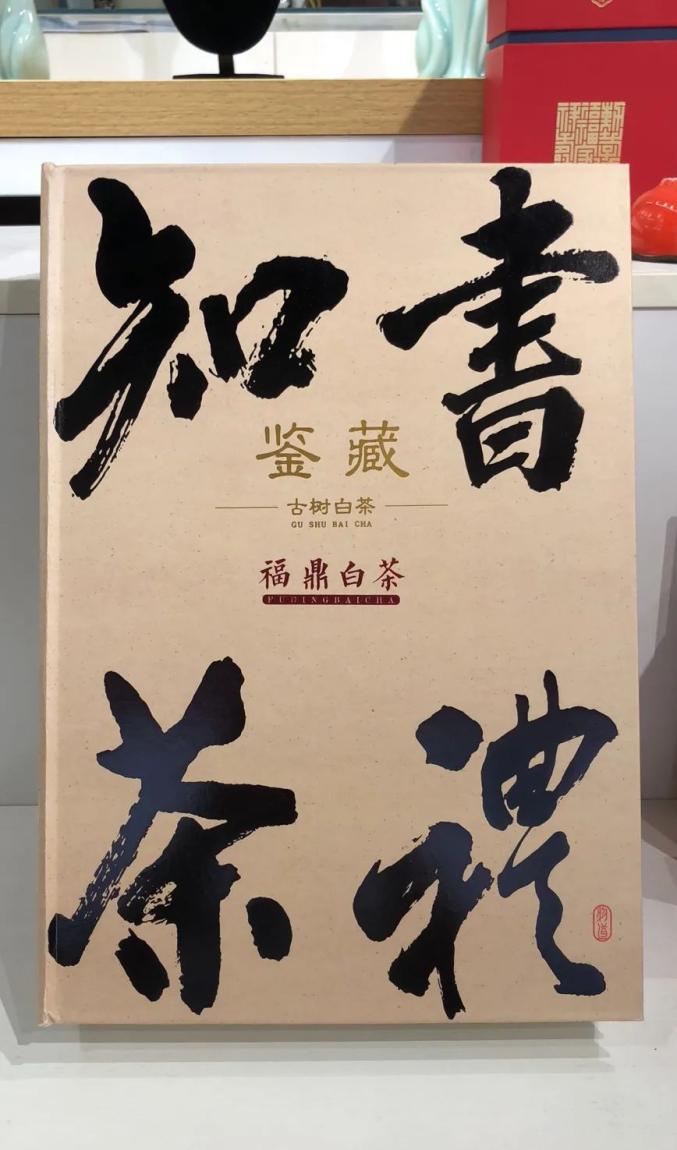 知書
鉴藏
古树白茶
GU SHU BAI CHA
福鼎白茶
FUDINGBAICHA
茶禮